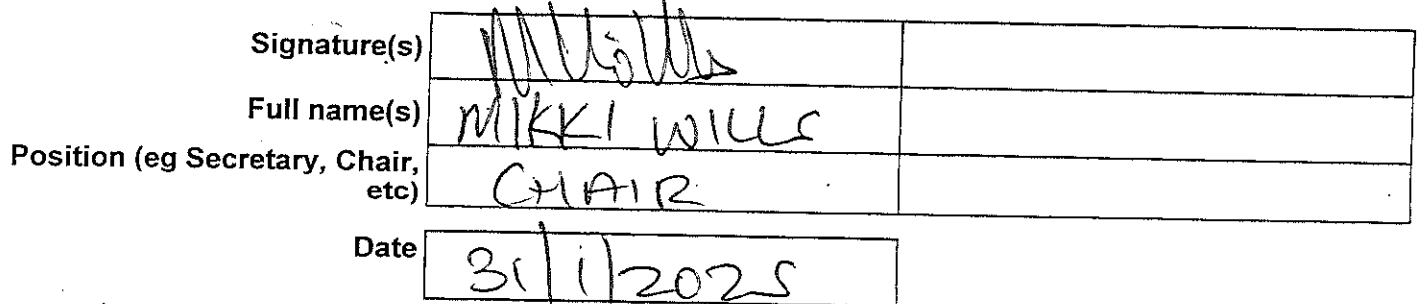 Signature(s)
Full name(s) MIKKI WILLS
Position (eg Secretary, Chair,
etc) CHAIR
Date 31/1/2025